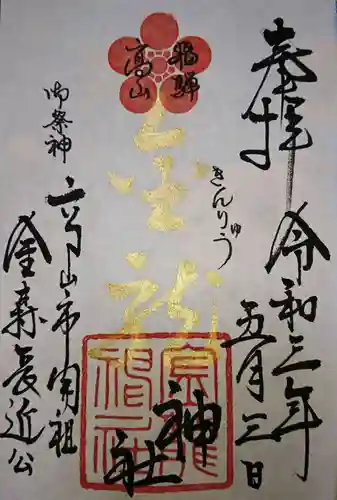 奉拝
令和三年
五月三日
飛騨
高山
金龍
きんりゅう
神社
御祭神
高山市開祖
金森長近公